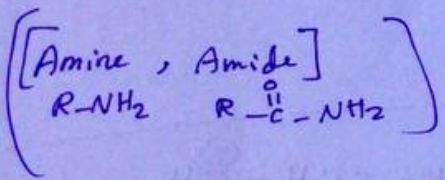 ([Amine, Amide])
O
R-NH2 R-C-NH2